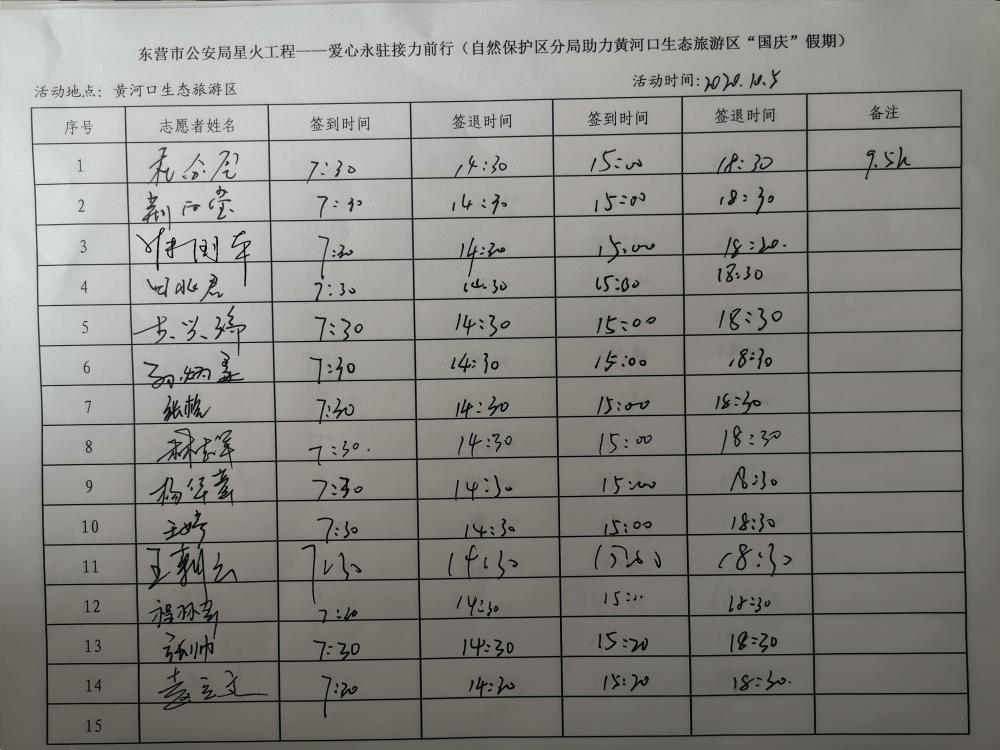 东营市公安局星火工程——爱心永驻接力前行（自然保护区分局助力黄河口生态旅游区“国庆”假期）
活动地点：黄河口生态旅游区 活动时间：2020.10.5
序号 志愿者姓名 签到时间 签退时间 签到时间 签退时间 备注
1 7:30 14:30 15:00 18:30 9.5h
2 7:30 14:30 15:00 18:30
3 7:30 14:30 15:00 18:30.
4 7:30 14:30 15:00 18:30
5 7:30 14:30 15:00 18:30
6 7:30 14:30 15:00 18:30
7 张桧 7:30 14:30 15:00 18:30
8 7:30. 14:30 15:00 18:30
9 杨华 7:30 14:30 15:00 18:30
10 王婷 7:30 14:30 15:00 18:30
11 王朝 7:30 14:30 15:00 18:30
12 7:30 14:30 15:00 18:30
13 张帅 7:30 14:30 15:20 18:30
14 袁立文 7:20 14:30 15:20 18:30.
15